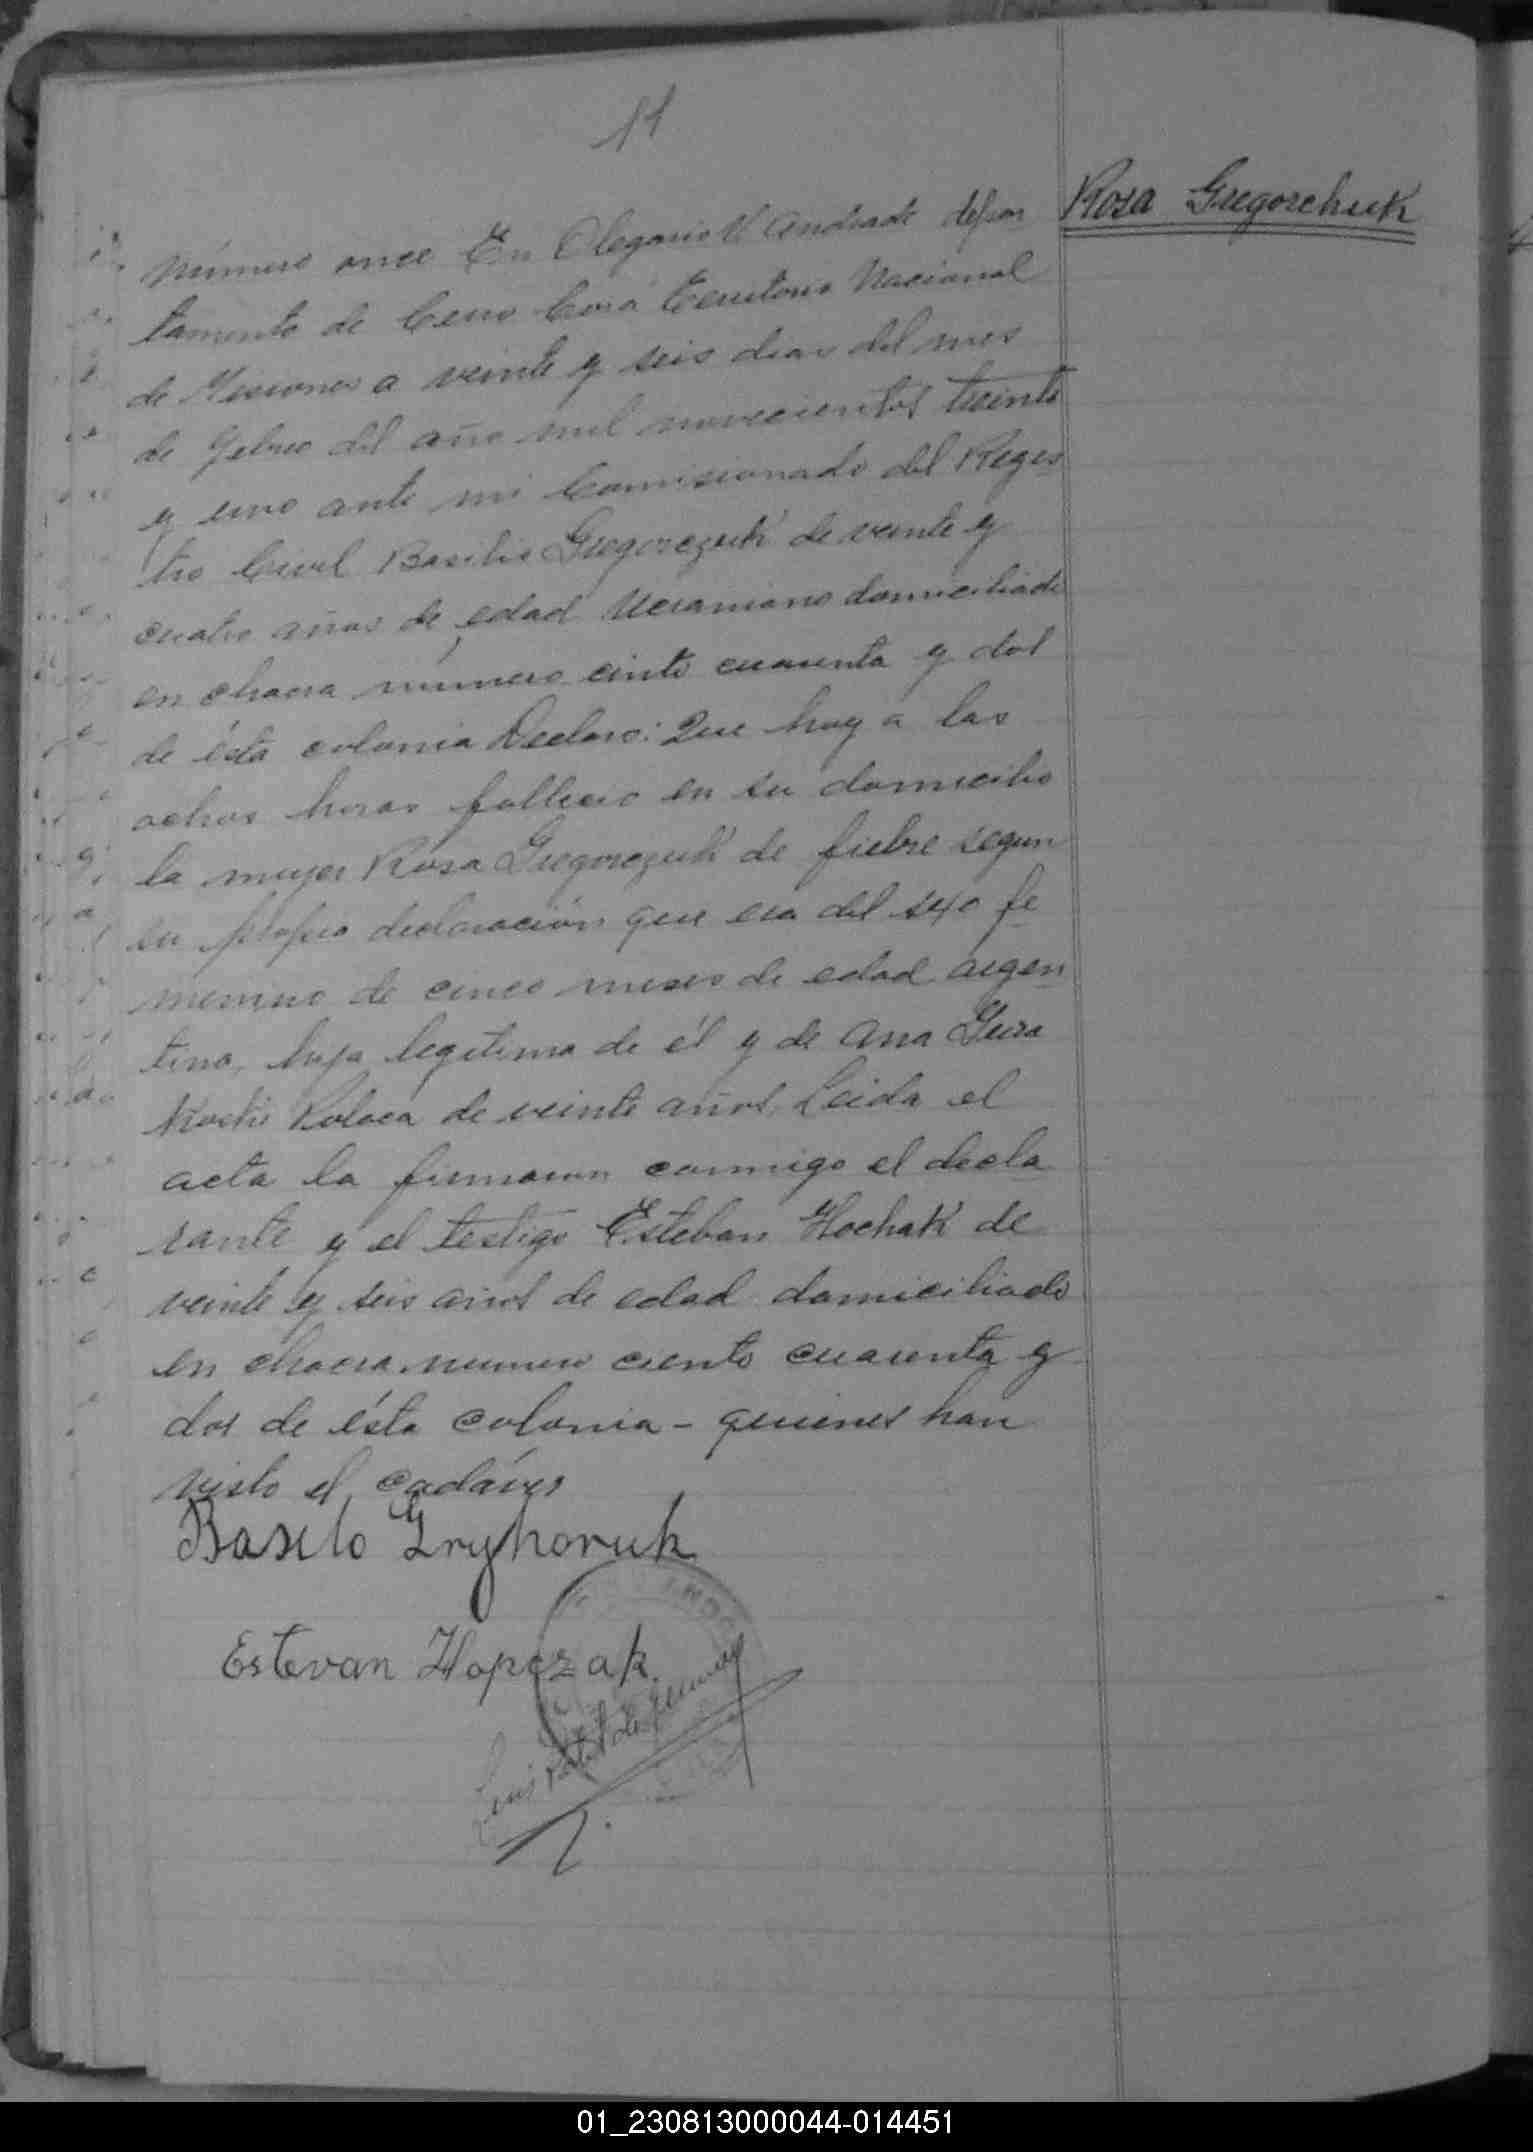 11
Rosa Gregorchuk
Número once En Olegario V. Andrade depar
tamento de Cerro Corá Territorio Nacional
de Misiones a veinte y seis dias del mes
de Febrero del año mil novecientos treinta
y uno ante mi Comisionado del Regis
tro Civil Basilio Gregorczuk de veinte y
cuatro años de edad Ucraniano domiciliado
en chacra número ciento cuarenta y dos
de ésta colonia Declaro: Que hoy a las
ochos horas fallecio en su domicilio
la mujer Rosa Gregorczuk de fiebre segun
su propia declaración que era del sexo fe
menino de cinco meses de edad argen
tina, hija legitima de él y de Ana
Polaca de veinte años, Leida el
acta la firmaron conmigo el decla
rante y el testigo Esteban Hochak de
veinte y seis años de edad domiciliado
en chacra numero ciento cuarenta y
dos de ésta colonia - quienes han
visto el cadáver
Basilo Gryhoruk
Estevan Hopczak
Luis
01_230813000044-014451